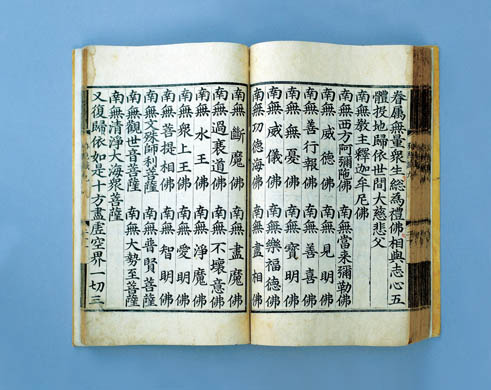 眷屬無量衆生總爲禮佛相與志心五
體投地歸依世間大慈悲父
南無教主釋迦牟尼佛
南無西方阿彌陁佛 南無當來彌勒佛
南無威德佛 南無見明佛
南無善行報佛 南無善喜佛
南無無憂佛 南無寶明佛
南無威儀佛 南無樂福德佛
南無功德海佛 南無盡相佛
南無斷魔佛 南無盡魔佛
南無過衰道佛 南無不壞意佛
南無水王佛 南無淨魔佛
南無衆上王佛 南無愛明佛
南無菩提相佛 南無智明佛
南無文殊師利菩薩 南無普賢菩薩
南無觀世音菩薩 南無大勢至菩薩
南無清淨大海衆菩薩
又復歸依如是十方盡虛空界一切三